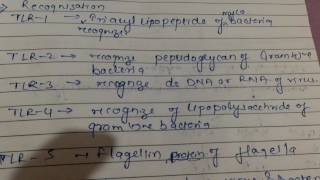 Recognisation
TLR-1 → Triacyl lipopeptide of myco bacteria
recognize
TLR-2 → recognize peptidoglycan of Gram +ve
bacteria
TLR-3 → recognize ds DNA or RNA of virus.
TLR-4 → recognize of lipopolysaccharide of
gram -ve bacteria
TLR-5 → flagellin protein of flagella